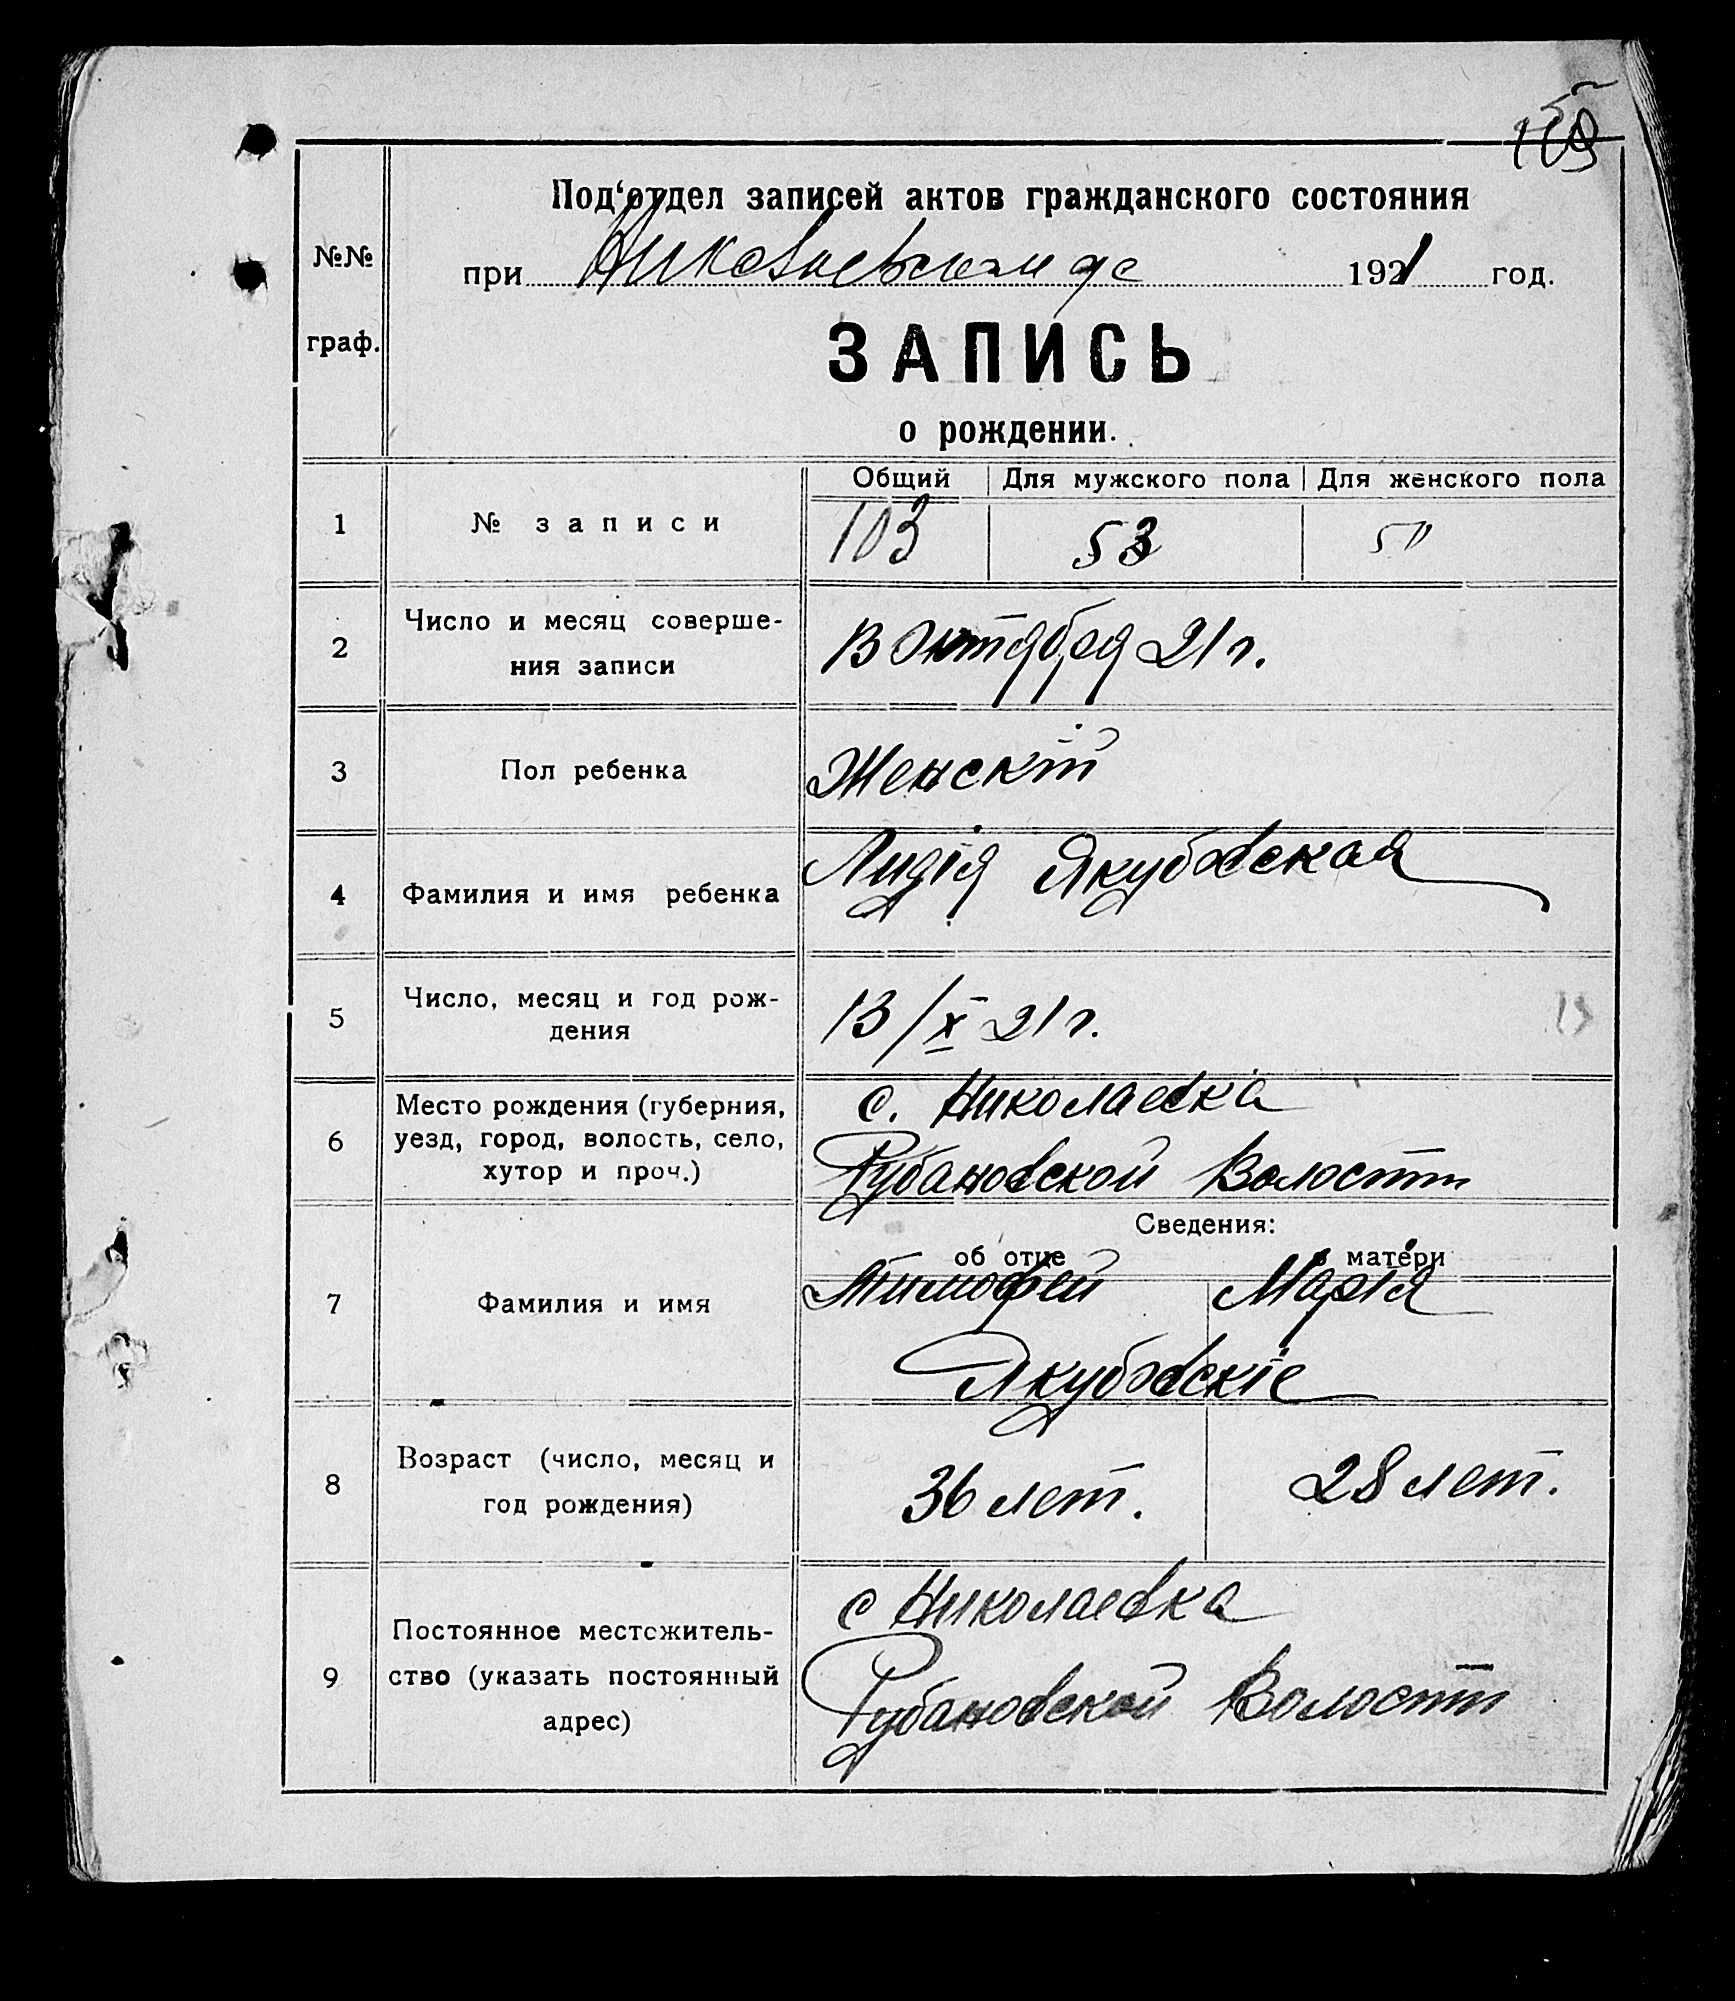 Под'отдел записей актов гражданского состояния
№№ граф.
при 1921 год.
ЗАПИСЬ
о рождении.
Общий Для мужского пола Для женского пола
1 № записи 103 53
2 Число и месяц соверше-
ния записи 13 Октября 21 г.
3 Пол ребенка Женскій
4 Фамилия и имя ребенка Лидія Якубовская
5 Число, месяц и год рож-
дения 13/X 21 г.
6 Место рождения (губерния,
уезд, город, волость, село,
хутор и проч.)
с. Николаевка
Рубановской Волости
Сведения:
об отце о матери
7 Фамилия и имя Тимофей Марія
Якубовскіе
8 Возраст (число, месяц и
год рождения) 36 лет. 28 лет.
9 Постоянное местожитель-
ство (указать постоянный
адрес)
с Николаевка
Рубановской Волости